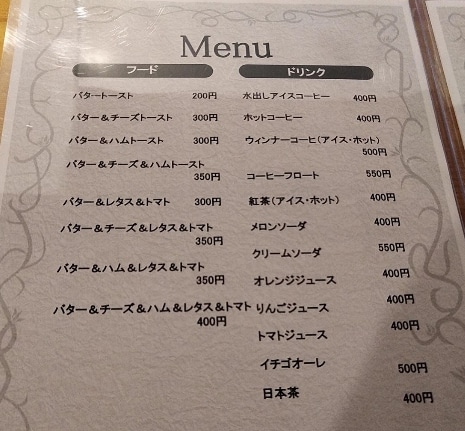 Menu
フード
バタートースト 200円
バター＆チーズトースト 300円
バター＆ハムトースト 300円
バター＆チーズ＆ハムトースト
350円
バター＆レタス＆トマト 300円
バター＆チーズ＆レタス＆トマト
350円
バター＆ハム＆レタス＆トマト
350円
バター＆チーズ＆ハム＆レタス＆トマト
400円
ドリンク
水出しアイスコーヒー 400円
ホットコーヒー 400円
ウィンナーコーヒ(アイス・ホット)
500円
コーヒーフロート 550円
紅茶(アイス・ホット) 400円
メロンソーダ 400円
クリームソーダ 550円
オレンジジュース 400円
りんごジュース 400円
トマトジュース 400円
イチゴオーレ 500円
日本茶 400円